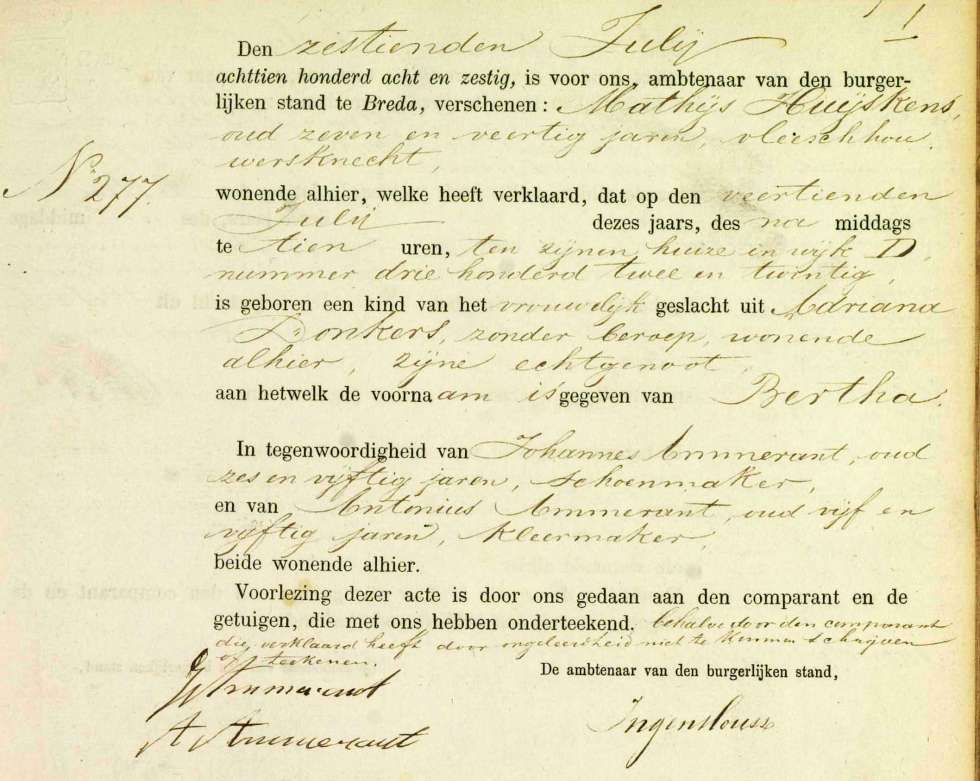 Den zestienden Julij
achttien honderd acht en zestig, is voor ons, ambtenaar van den burger-
lijken stand te Breda, verschenen: Mathijs Huijskens,
oud zeven en veertig jaren, vleeschhou
wersknecht,
No 277.
wonende alhier, welke heeft verklaard, dat op den veertienden
Julij dezes jaars, des na middags
te tien uren, ten zijnen huize in wijk D,
nummer drie honderd twee en twintig,
is geboren een kind van het vrouwelijk geslacht uit Adriana
Donkers, zonder beroep, wonende
alhier, zijne echtgenoot,
aan hetwelk de voornaam is gegeven van Bertha.
In tegenwoordigheid van Johannes Ammerant, oud
zes en vijftig jaren, schoenmaker,
en van Antonius Ammerant, oud vijf en
vijftig jaren, kleermaker,
beide wonende alhier.
Voorlezing dezer acte is door ons gedaan aan den comparant en de
getuigen, die met ons hebben onderteekend. behalve door den comparant
die, verklaard heeft door ongeleerdheid niet te kunnen schrijven
of teekenen.
De ambtenaar van den burgerlijken stand,
J Ammerant
A Ammerant
Ingenhousz